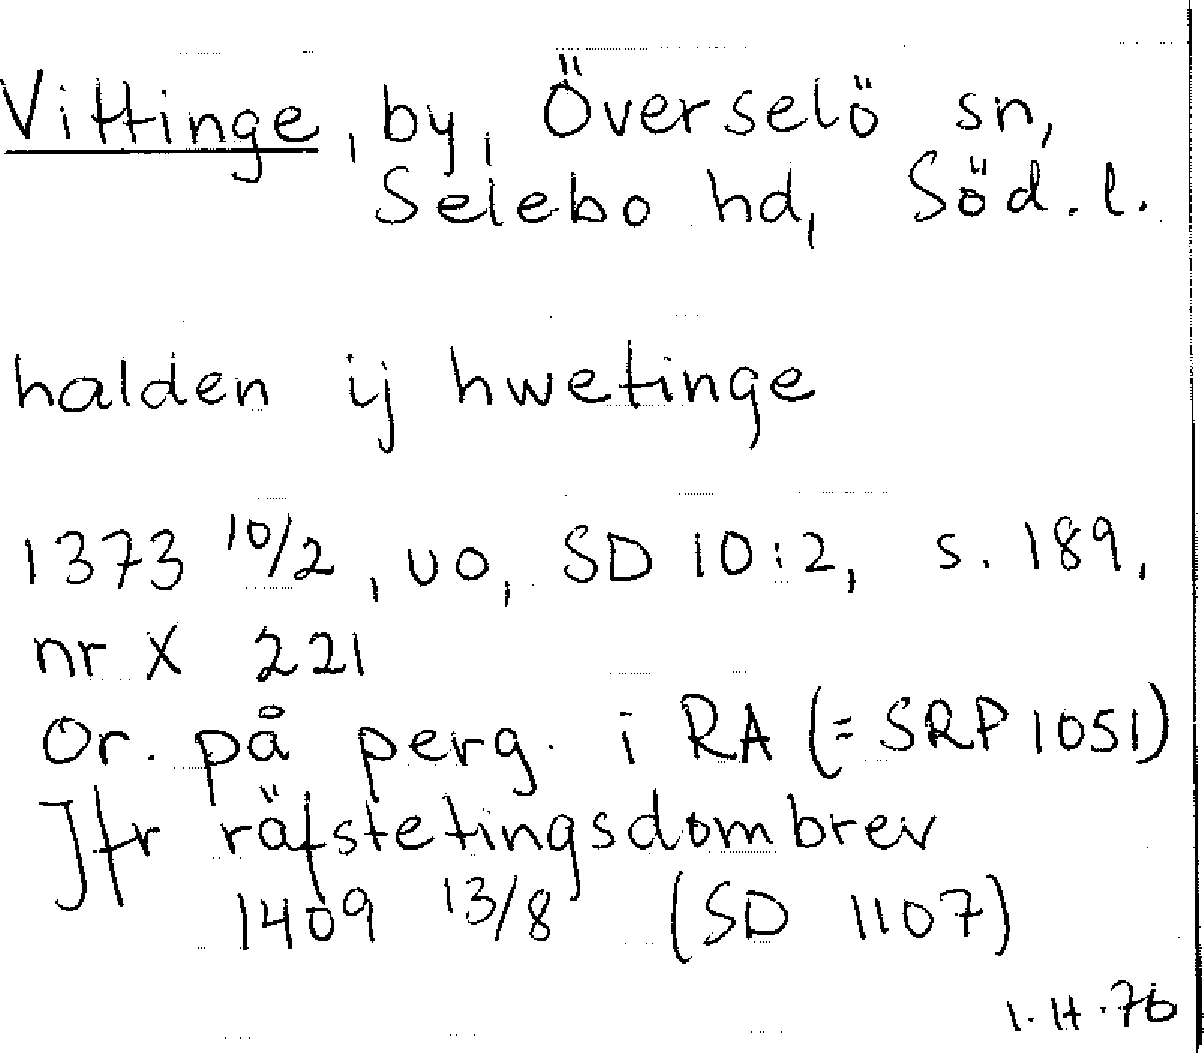 Vittinge, by, Överselö sn,
Selebo hd, Söd. l.
halden ij hwetinge
1373 10/2, uo, SD 10:2, s. 189,
nr X 221
Or. på perg. i RA (= SRP 1051)
Jfr räfstetingsdombrev
1409 13/8 (SD 1107)